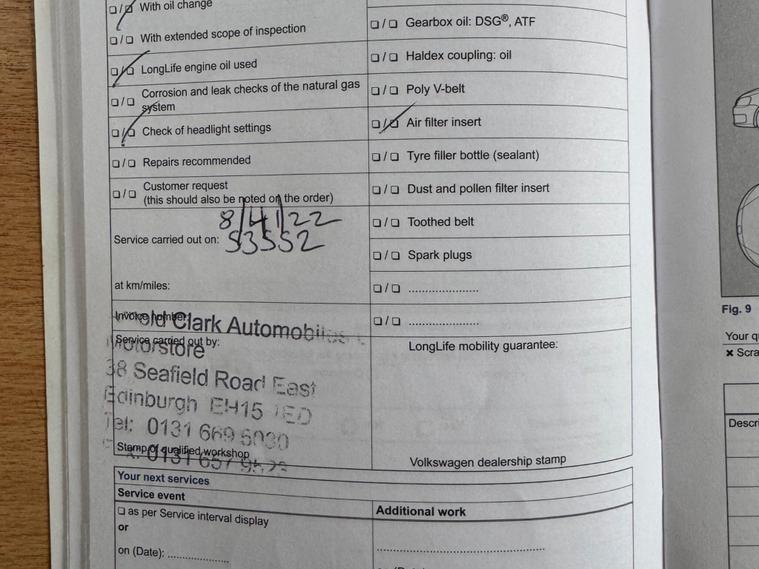 With oil change
With extended scope of inspection
LongLife engine oil used
Corrosion and leak checks of the natural gas
system
Check of headlight settings
Repairs recommended
Customer request
(this should also be noted on the order)
8/4/22
Service carried out on: 53552
at km/miles:
Invoice number:
Arnold Clark Automobiles
Service carried out by:
Motorstore
38 Seafield Road East
Edinburgh EH15 1ED
Tel: 0131 669 5030
Stamp of qualified workshop
0131 657
Gearbox oil: DSG®, ATF
Haldex coupling: oil
Poly V-belt
Air filter insert
Tyre filler bottle (sealant)
Dust and pollen filter insert
Toothed belt
Spark plugs
....................
....................
LongLife mobility guarantee:
Volkswagen dealership stamp
Your next services
Service event
as per Service interval display
or
on (Date): .................
Additional work
..............................................
Fig. 9
Your
Scra
Descri